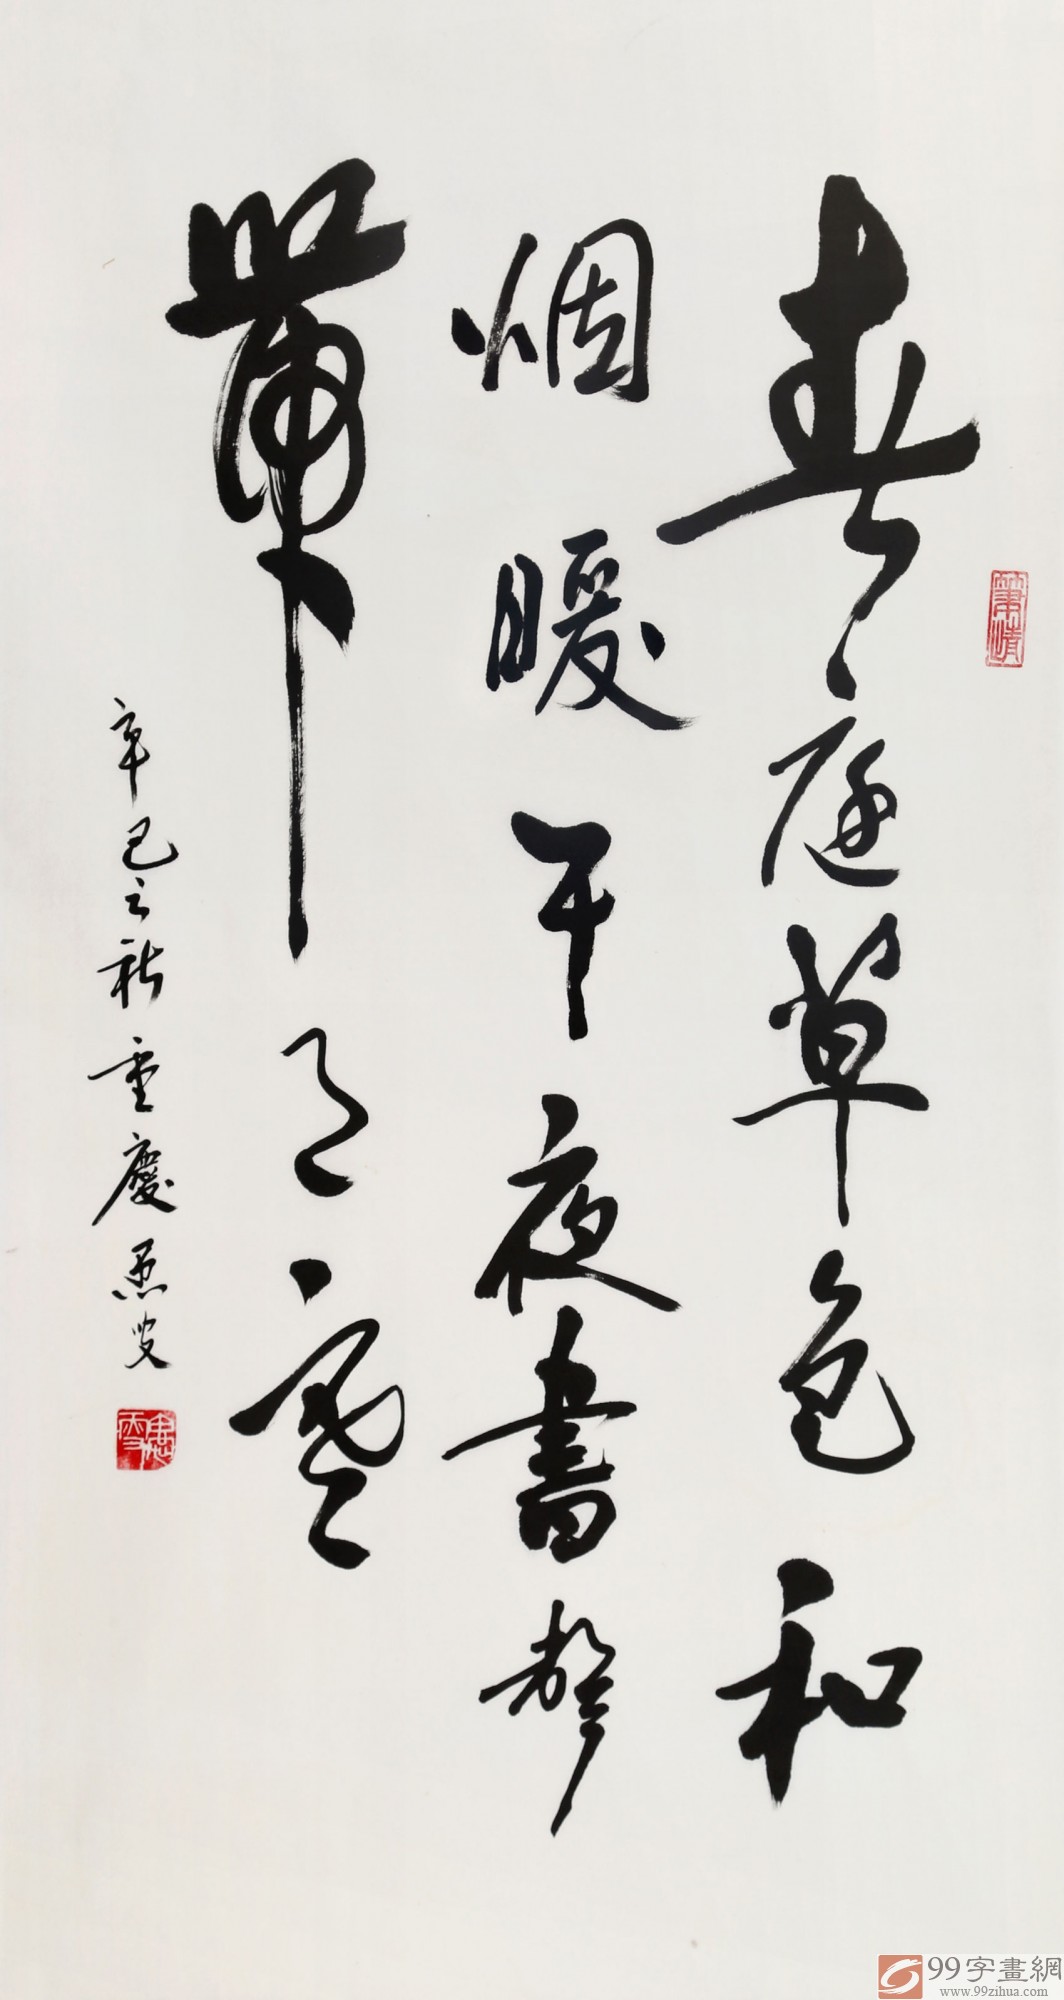 春庭草色和
烟暖午夜書聲
帶月寒
辛巳之秋重慶愚叟
99字畫網
www.99zihua.com